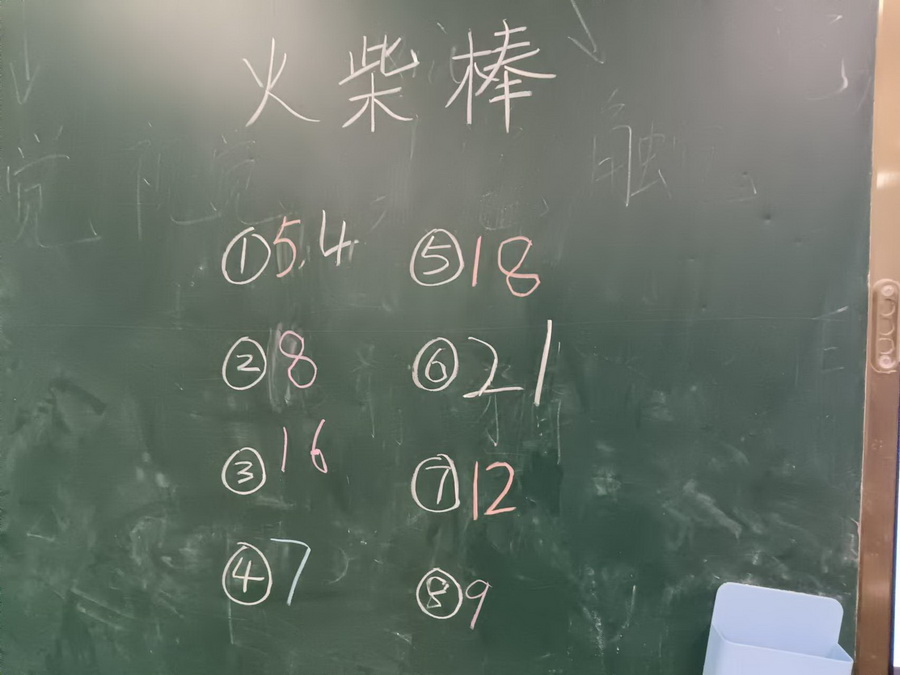 火柴棒
①5.4
②8
③16
④7
⑤18
⑥21
⑦12
⑧9